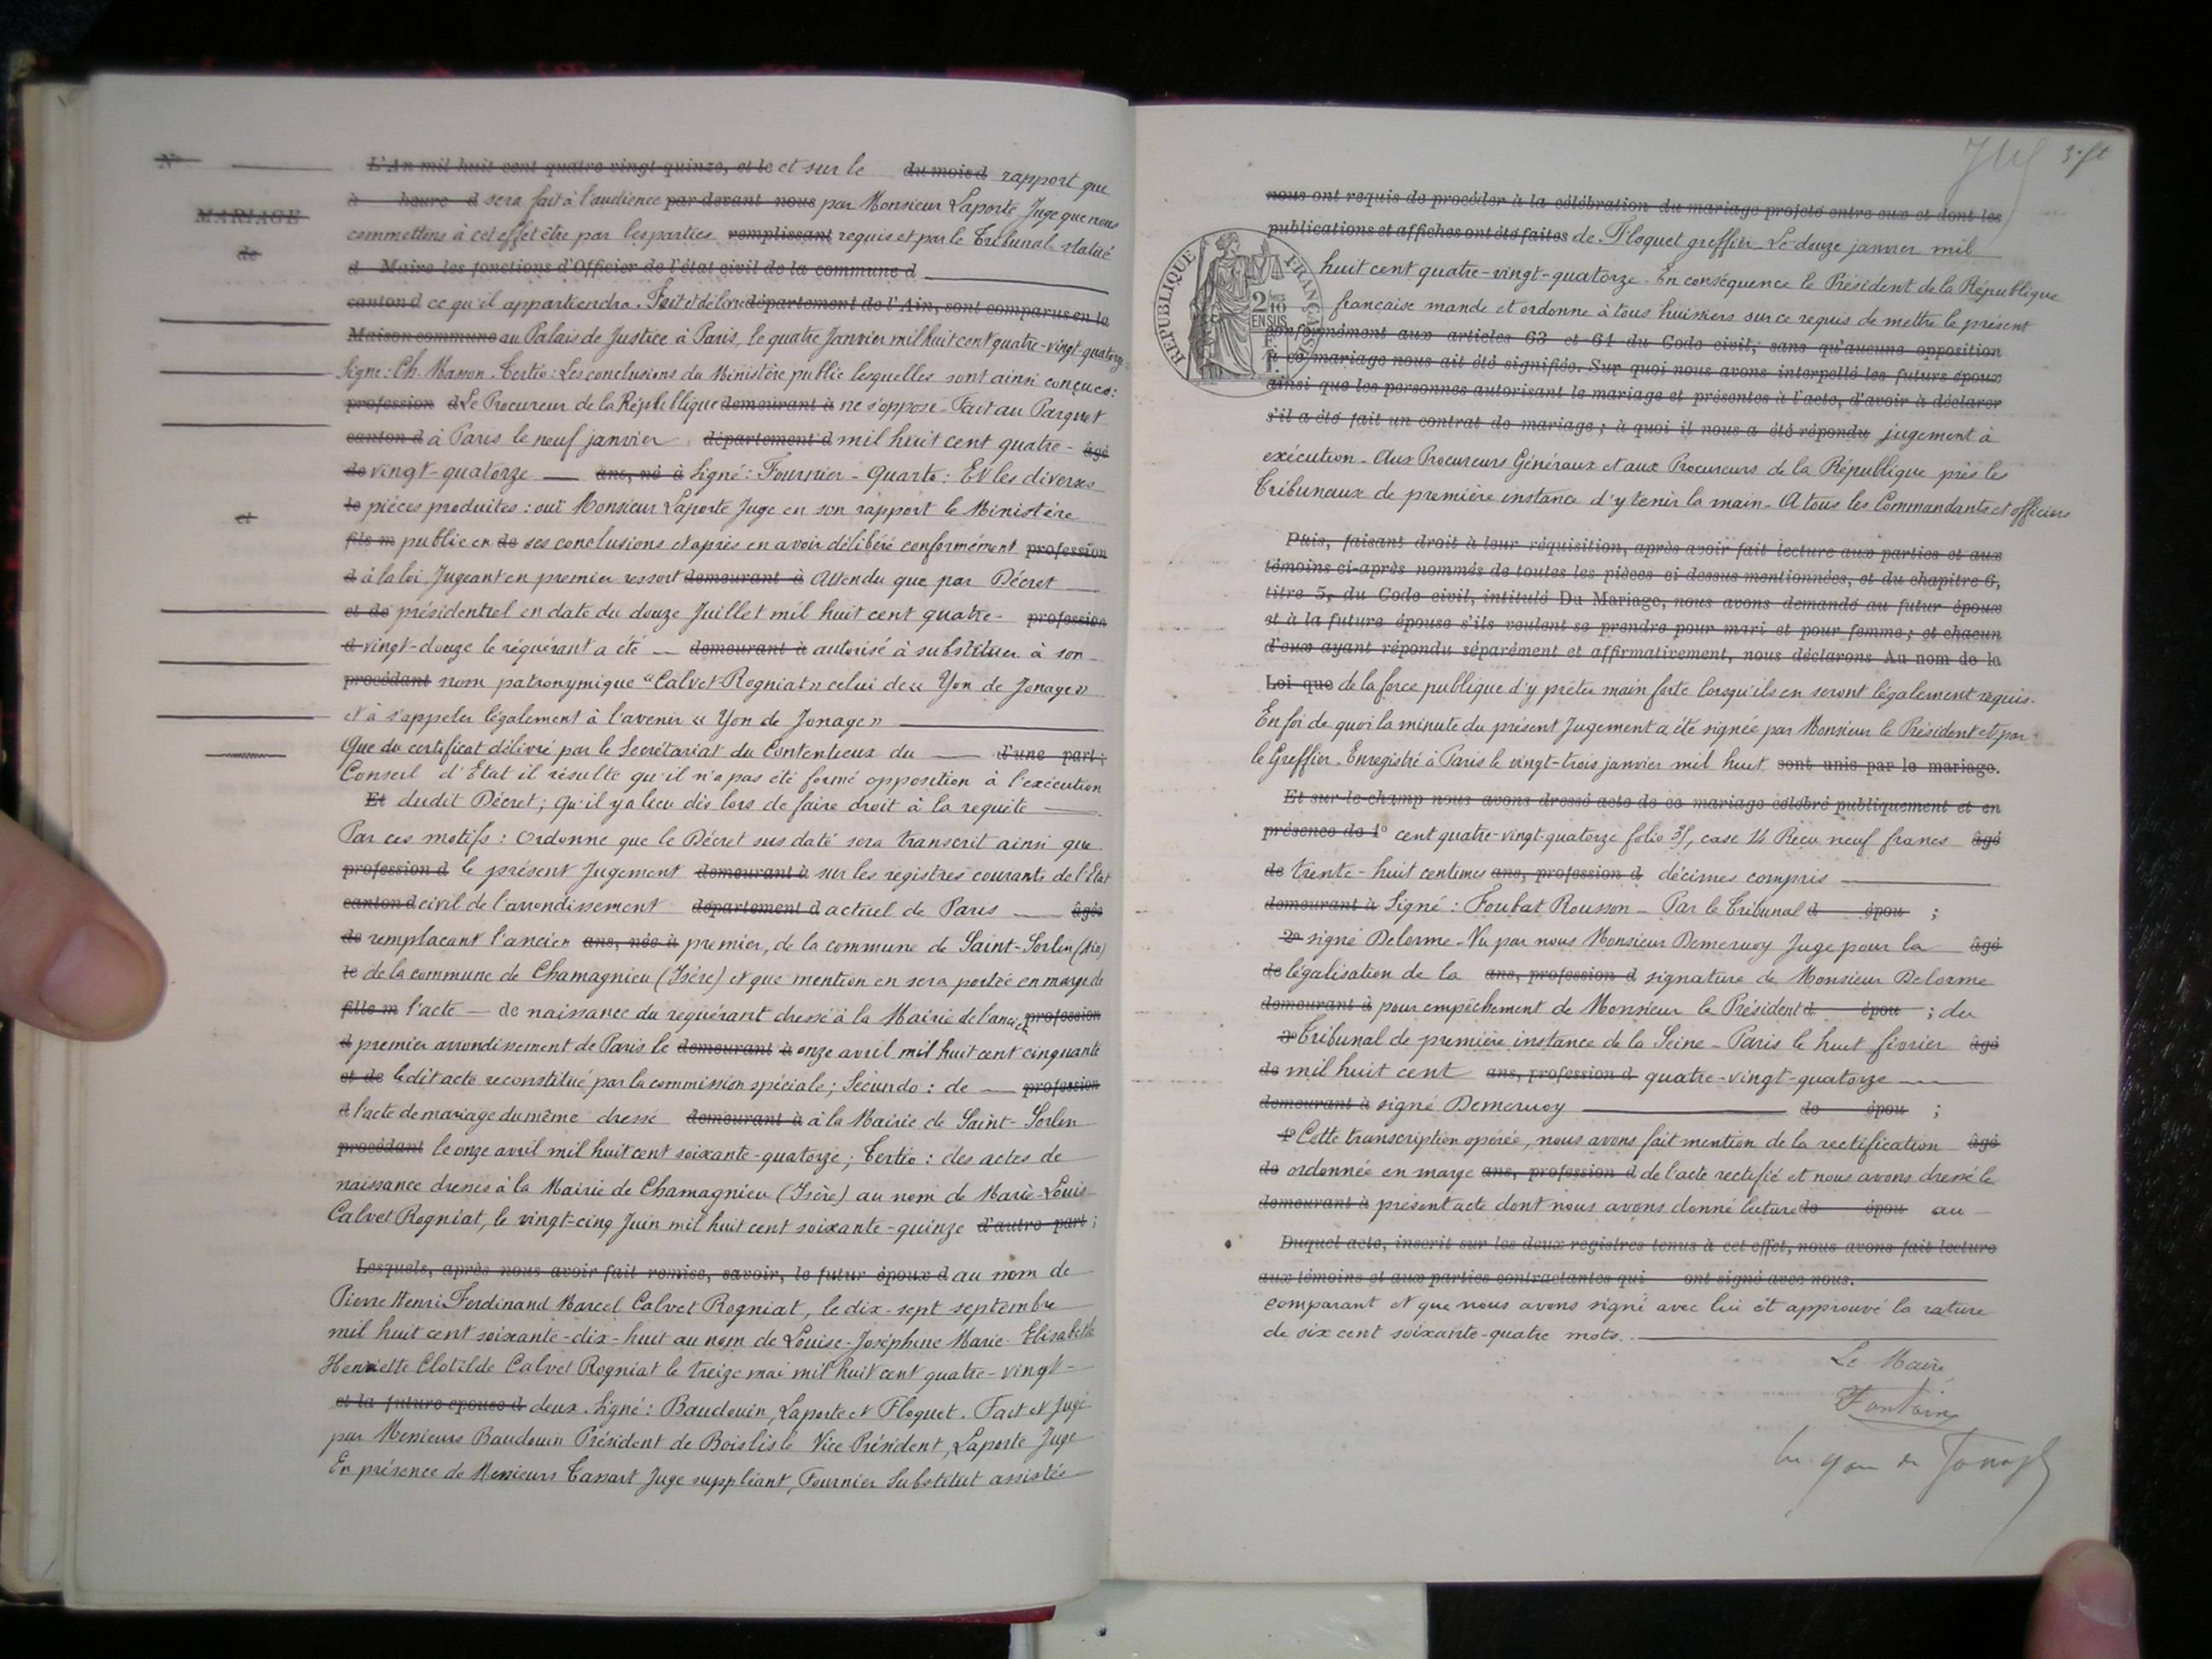 N°
L'An mil huit cent quatre vingt quinze, et le et sur le du mois d rapport que
à heure d sera fait à l'audience par devant nous par Monsieur Laporte Juge que nous
MARIAGE
commettons à cet effet être par les parties remplissant requis et par le Tribunal statué
de
d Maire les fonctions d'Officier de l'état civil de la commune d
canton d ce qu'il appartiendra. Fait et délivré département de l'Ain, sont comparus en la
Maison commune au Palais de Justice à Paris, le quatre Janvier mil huit cent quatre-vingt-quatorze
Signé: Ch. Manon. Tertio: Les conclusions du Ministère public lesquelles sont ainsi conçues:
profession d Le Procureur de la République demeurant à ne s'oppose. Fait au Parquet
canton d à Paris le neuf janvier département d mil huit cent quatre- âgé
de vingt-quatorze ans, né à Signé: Fournier - Quarto: Et les diverses
le pièces produites: ouï Monsieur Laporte Juge en son rapport le Ministère
et
fils m public en de ses conclusions et après en avoir délibéré conformément profession
d à la loi. Jugeant en premier ressort demeurant à Attendu que par Décret
et de présidentiel en date du douze Juillet mil huit cent quatre- profession
d vingt-douze le requérant a été demeurant à autorisé à substituer à son
procédant nom patronymique "Calvet-Rogniat" celui de « Yon de Jonage »
et à s'appeler légalement à l'avenir « Yon de Jonage »
Que du certificat délivré par le Secrétariat du Contentieux du d'une part;
Conseil d'Etat il résulte qu'il n'a pas été formé opposition à l'exécution
Et dudit Décret; Qu'il y a lieu dès lors de faire droit à la requête
Par ces motifs: Ordonne que le Décret sus daté sera transcrit ainsi que
profession d le présent Jugement demeurant à sur les registres courants de l'Etat
canton d civil de l'arrondissement département d actuel de Paris âgée
de remplaçant l'ancien ans, née à premier, de la commune de Saint-Sorlin (Ain)
le de la commune de Chamagnieu (Isère) et que mention en sera portée en marge de
fille m l'acte - de naissance du requérant dressé à la Mairie de l'ancien profession
d premier arrondissement de Paris le demeurant à onze avril mil huit cent cinquante
et de ledit acte reconstitué par la commission spéciale; Secundo: de profession
d l'acte de mariage du même dressé demeurant à à la Mairie de Saint-Sorlin
procédant le onze avril mil huit cent soixante-quatorze; Tertio: des actes de
naissance dressés à la Mairie de Chamagnieu (Isère) au nom de Marie-Louis
Calvet Rogniat, le vingt-cinq Juin mil huit cent soixante-quinze d'autre part;
Lesquels, après nous avoir fait remise, savoir, le futur époux d au nom de
Pierre Henri Ferdinand Marcel Calvet Rogniat, le dix-sept septembre
mil huit cent soixante-dix-huit au nom de Louise-Joséphine Marie Elisabeth
Henriette Clotilde Calvet Rogniat le treize mai mil huit cent quatre-vingt-
et la future épouse d deux. Signé: Baudouin, Laporte et Floquet. Fait et jugé
par Messieurs Baudouin Président de Boislisle Vice Président, Laporte Juge
En présence de Messieurs Tassart Juge suppléant, Fournier Substitut assistés
nous ont requis de procéder à la célébration du mariage projeté entre eux et dont les
publications et affiches ont été faites de Floquet greffier. Le douze janvier mil
huit cent quatre-vingt-quatorze - En conséquence le Président de la République
française mande et ordonne à tous huissiers sur ce requis de mettre le présent
RÉPUBLIQUE FRANÇAISE
2 10 EN SUS
conformément aux articles 63 et 64 du Code civil, sans qu'aucune opposition
à ce mariage nous ait été signifiée. Sur quoi nous avons interpellé les futurs époux
ainsi que les personnes autorisant le mariage et présentes à l'acte, d'avoir à déclarer
s'il a été fait un contrat de mariage; à quoi il nous a été répondu jugement à
exécution - Aux Procureurs Généraux et aux Procureurs de la République près les
Tribunaux de première instance d'y tenir la main - A tous les Commandants et officiers
Puis, faisant droit à leur réquisition, après avoir fait lecture aux parties et aux
témoins ci-après nommés de toutes les pièces ci-dessus mentionnées, et du chapitre 6,
titre 5, du Code civil, intitulé Du Mariage, nous avons demandé au futur époux
et à la future épouse s'ils veulent se prendre pour mari et pour femme; et chacun
d'eux ayant répondu séparément et affirmativement, nous déclarons Au nom de la
Loi que de la force publique d'y prêter main forte lorsqu'ils en seront légalement requis.
En foi de quoi la minute du présent Jugement a été signée par Monsieur le Président et par
le Greffier. Enregistré à Paris le vingt-trois janvier mil huit sont unis par le mariage.
Et sur-le-champ nous avons dressé acte de ce mariage célébré publiquement et en
présence de 1° cent quatre-vingt-quatorze folio 31, case 14 Reçu neuf francs âgé
de trente-huit centimes ans, profession d décimes compris
demeurant à Signé: Foubat Rousson - Par le Tribunal d épou ;
2° signé Delorme - Vu par nous Monsieur Demeruoy Juge pour la âgé
de légalisation de la ans, profession d signature de Monsieur Delorme
demeurant à pour empêchement de Monsieur le Président d épou ; du
3° Tribunal de première instance de la Seine - Paris le huit février âgé
de mil huit cent ans, profession d quatre-vingt-quatorze
demeurant à signé Demeruoy de épou ;
4° Cette transcription opérée, nous avons fait mention de la rectification âgé
de ordonnée en marge ans, profession d de l'acte rectifié et nous avons dressé le
demeurant à présent acte dont nous avons donné lecture de épou au
Duquel acte, inscrit sur les deux registres tenus à cet effet, nous avons fait lecture
aux témoins et aux parties contractantes qui ont signé avec nous.
comparant et que nous avons signé avec lui et approuvé la rature
de six cent soixante-quatre mots.
Le Maire
Fontaine
Yon de Jonage